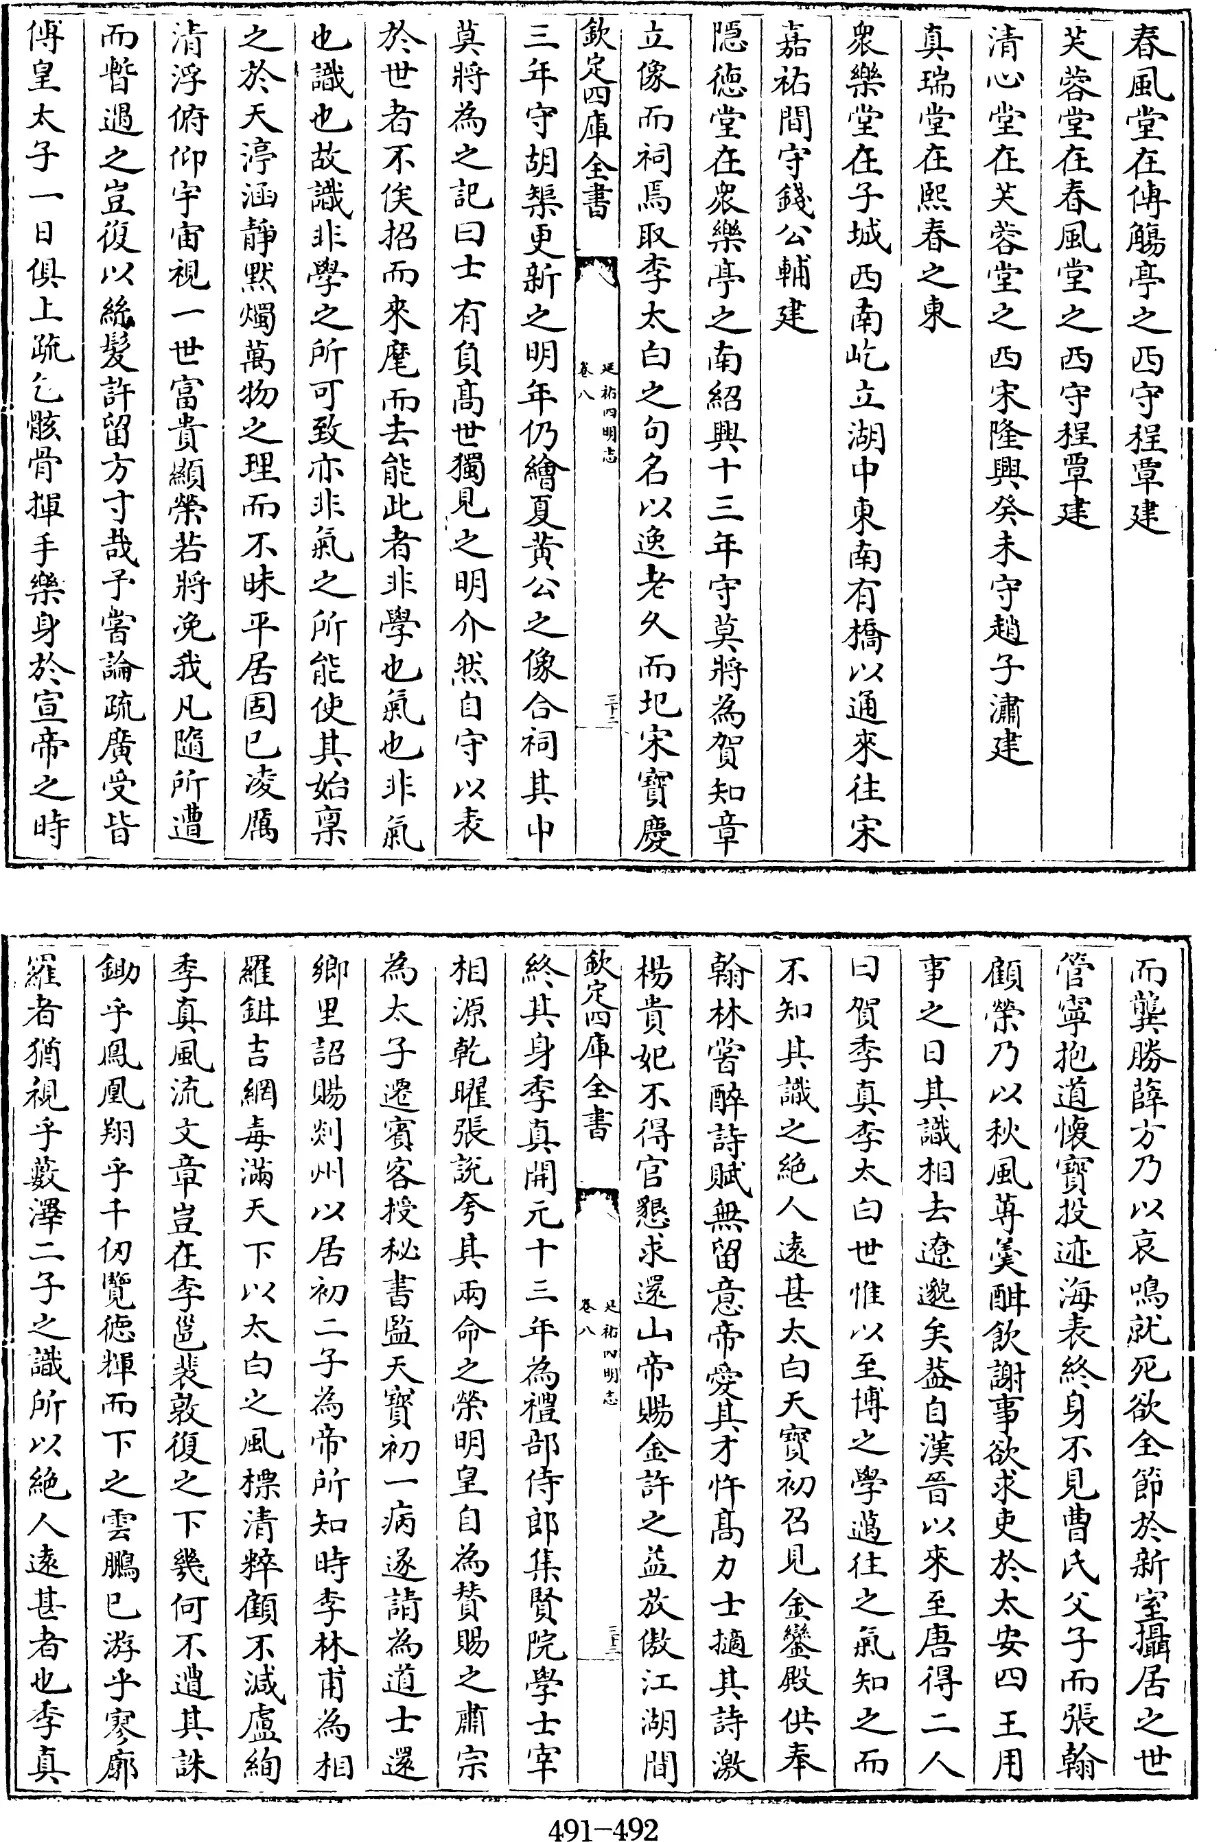 春風堂在傅觴亭之西守程覃建
芙蓉堂在春風堂之西守程覃建
清心堂在芙蓉堂之西宋隆興癸未守趙子潚建
真瑞堂在熙春之東
衆樂堂在子城西南屹立湖中東南有橋以通來往宋
嘉祐間守錢公輔建
隠徳堂在衆樂亭之南紹興十三年守莫將為賀知章
立像而祠焉取李太白之句名以逸老久而圯宋寳慶
欽定四庫全書
延祐四明志
卷八
三十二
三年守胡榘更新之明年仍繪夏黄公之像合祠其中
莫將為之記曰士有負髙世獨見之明介然自守以表
於世者不俟招而來麾而去能此者非學也氣也非氣
也識也故識非學之所可致亦非氣之所能使其始禀
之於天渟涵靜黙燭萬物之理而不昧平居固已凌厲
清浮俯仰宇宙視一世富貴顯榮若將凂我凡隨所遭
而暫過之豈復以絲髪許留方寸哉予嘗論疏廣受皆
傅皇太子一日俱上疏乞骸骨揮手樂身於宣帝之時
而龔勝薛方乃以哀鳴就死欲全節於新室攝居之世
管寧抱道懷寳投迹海表終身不見曹氏父子而張翰
顧榮乃以秋風蓴羮酣飲謝事欲求吏於太安四王用
事之日其識相去遼邈矣葢自漢晉以來至唐得二人
曰賀季真李太白世惟以至博之學邁往之氣知之而
不知其識之絶人逺甚太白天寳初召見金鑾殿供奉
翰林嘗醉詩賦無留意帝愛其才忤髙力士擿其詩激
楊貴妃不得官懇求還山帝賜金許之益放傲江湖間
欽定四庫全書
延祐四明志
卷八
三十三
終其身季真開元十三年為禮部侍郎集賢院學士宰
相源乾曜張説夸其兩命之榮明皇自為賛賜之肅宗
為太子遷賓客授秘書監天寳初一病遂請為道士還
鄉里詔賜剡州以居初二子為帝所知時李林甫為相
羅鉗吉網毒滿天下以太白之風標清粹顧不減盧絢
季真風流文章豈在李邕裴敦復之下幾何不遭其誅
鋤乎鳳凰翔乎千仞覽徳輝而下之雲鵬已游乎寥廓
羅者猶視乎藪澤二子之識所以絶人逺甚者也季真
491-492